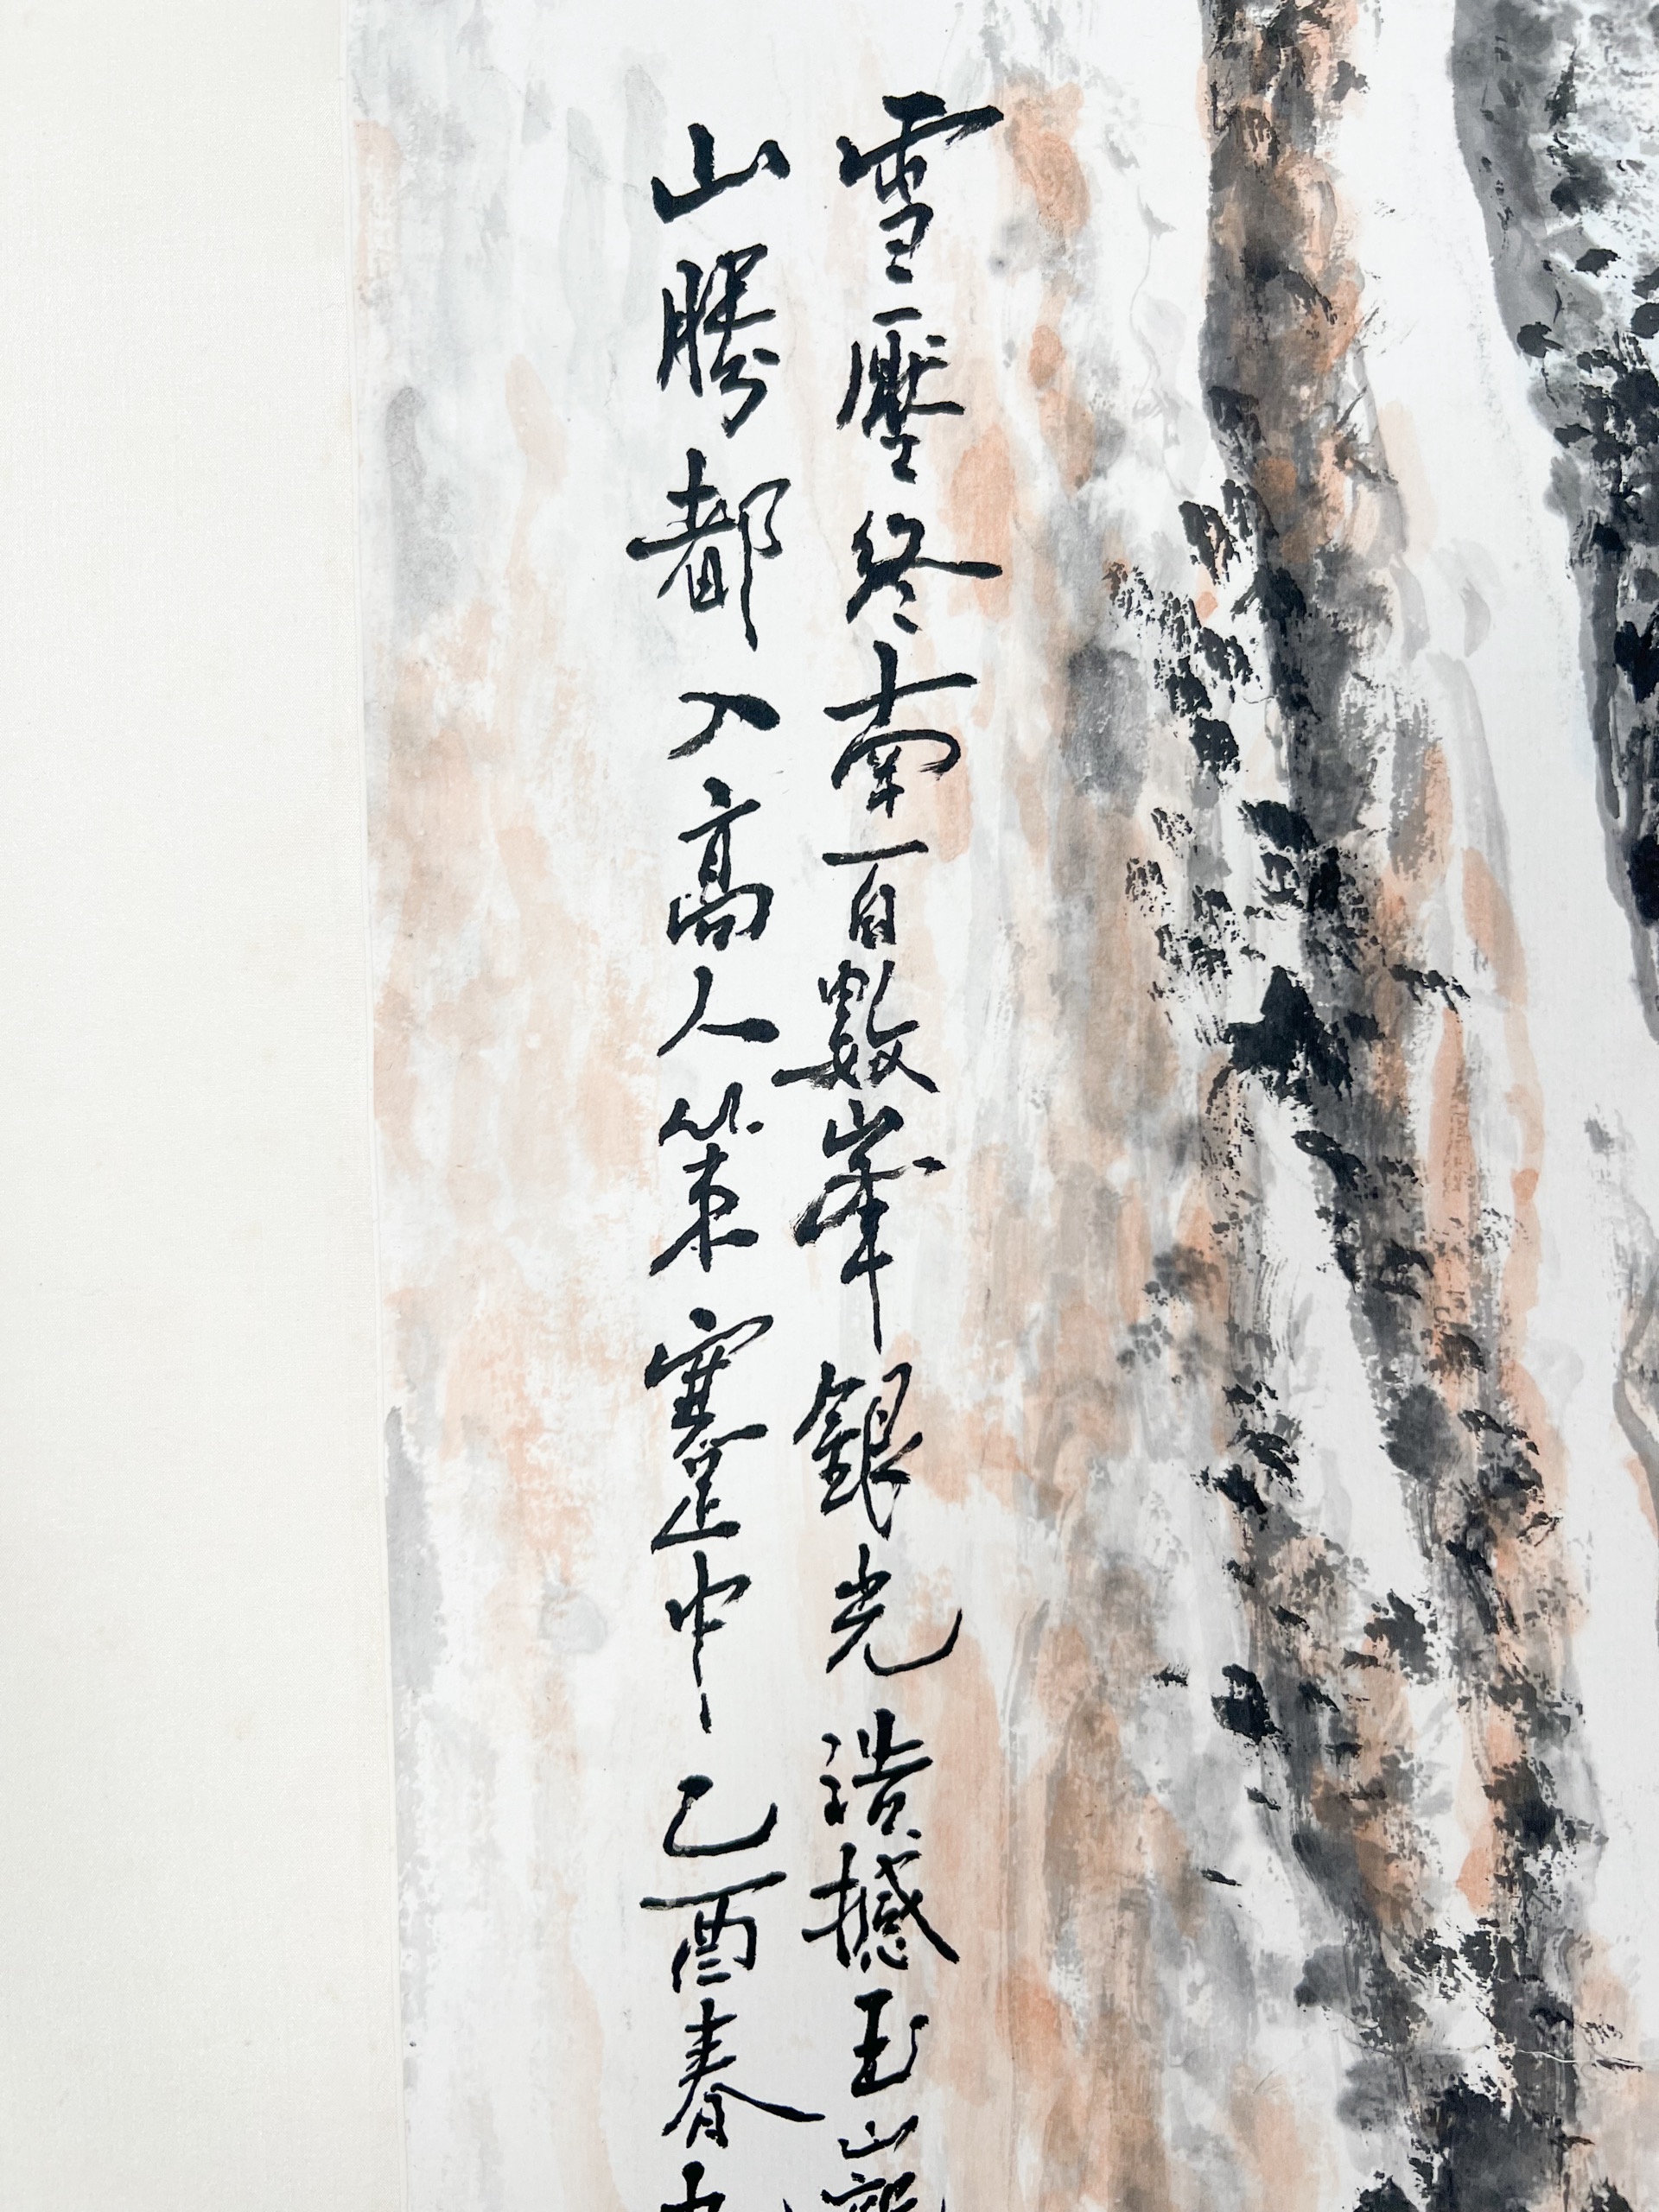 雪壓終南一百數峯銀光浩撼玉山
山勝都入高人策蹇中乙酉春